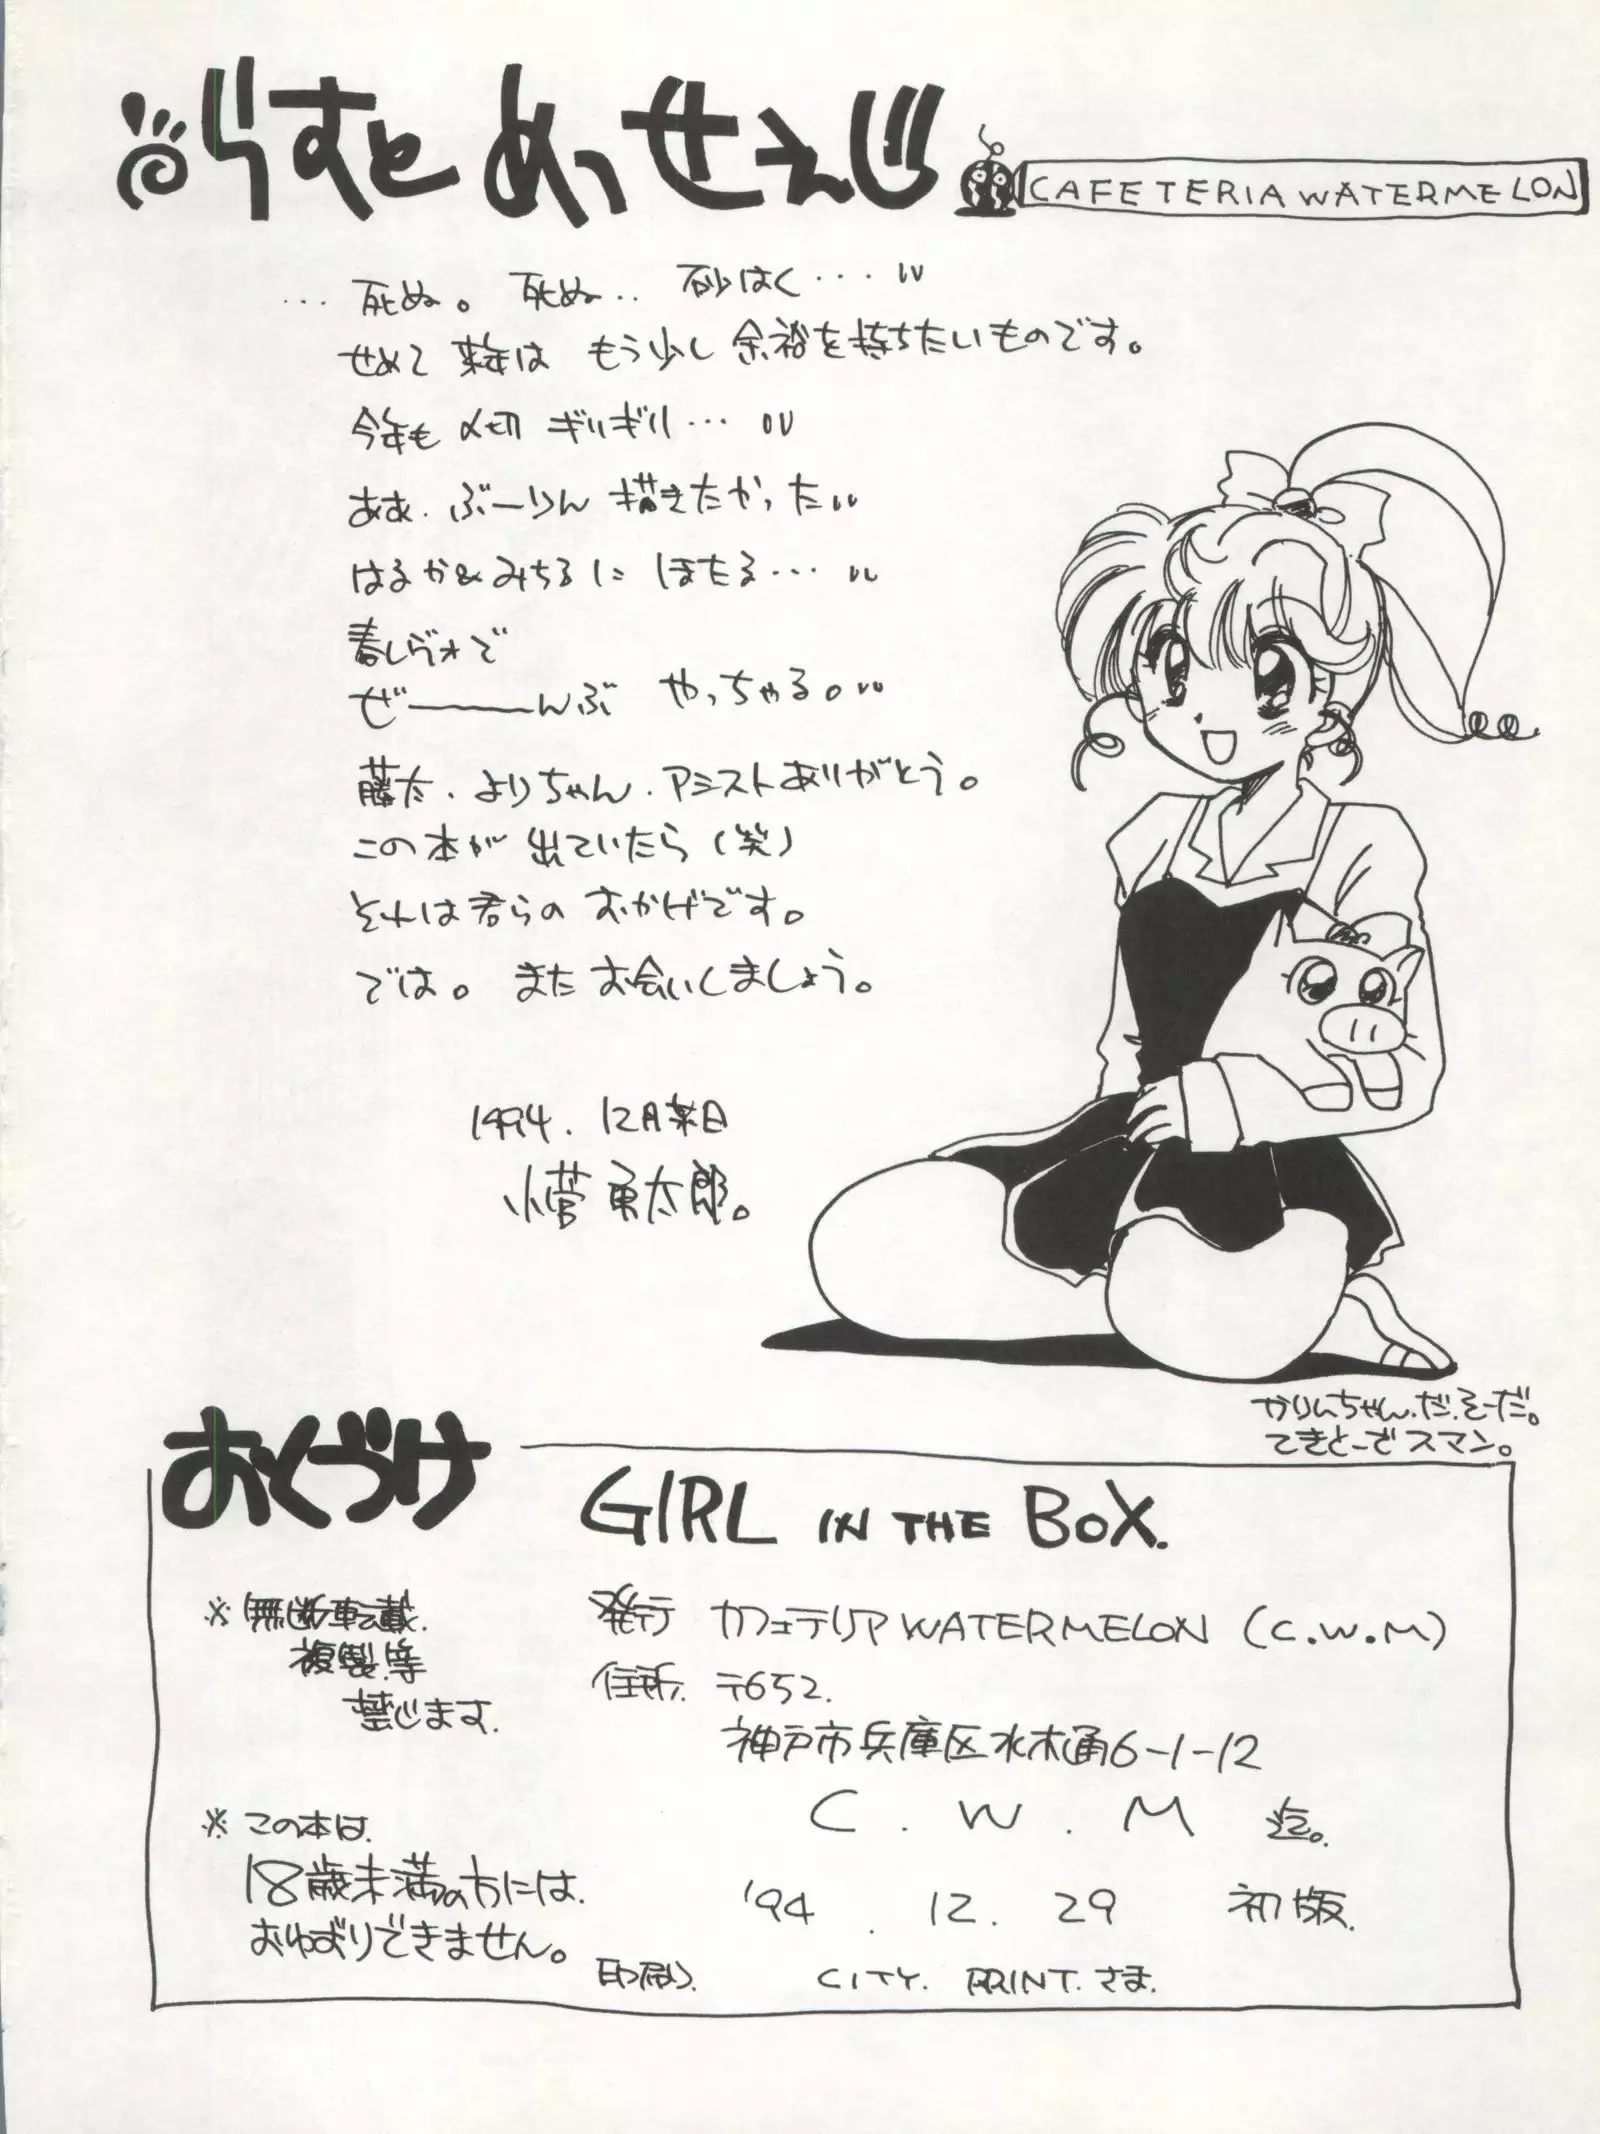 らすと めっせえじ
CAFETERIA WATERMELON
…死ぬ。死ぬ‥ 砂はく…
せめて 来年は もう少し 余裕を持ちたいものです。
今年も 〆切 ぎりぎり…
ああ、ぶーりん 描きたかった
はるか&みちるに ほたる…
春レヴォで
ぜーーーんぶ やっちゃる。
藤太、よりちゃん、アシストありがとう。
この本が 出ていたら(笑)
それは君らの おかげです。
では。 また お会いしましょう。
1994. 12月某日
小菅 勇太郎。
かりんちゃん、だ、そーだ。
てきとーで スマン。
おくづけ
GIRL IN THE BOX.
※無断転載、
複製、等
禁じます。
※この本は、
18歳未満の方には、
おゆずりできません。
発行 カフェテリア WATERMELON (C.W.M)
住所、〒652.
神戸市兵庫区水木通6-1-12
C . W . M 迄。
'94 . 12. 29 初版.
印刷. CITY. PRINT. さま.